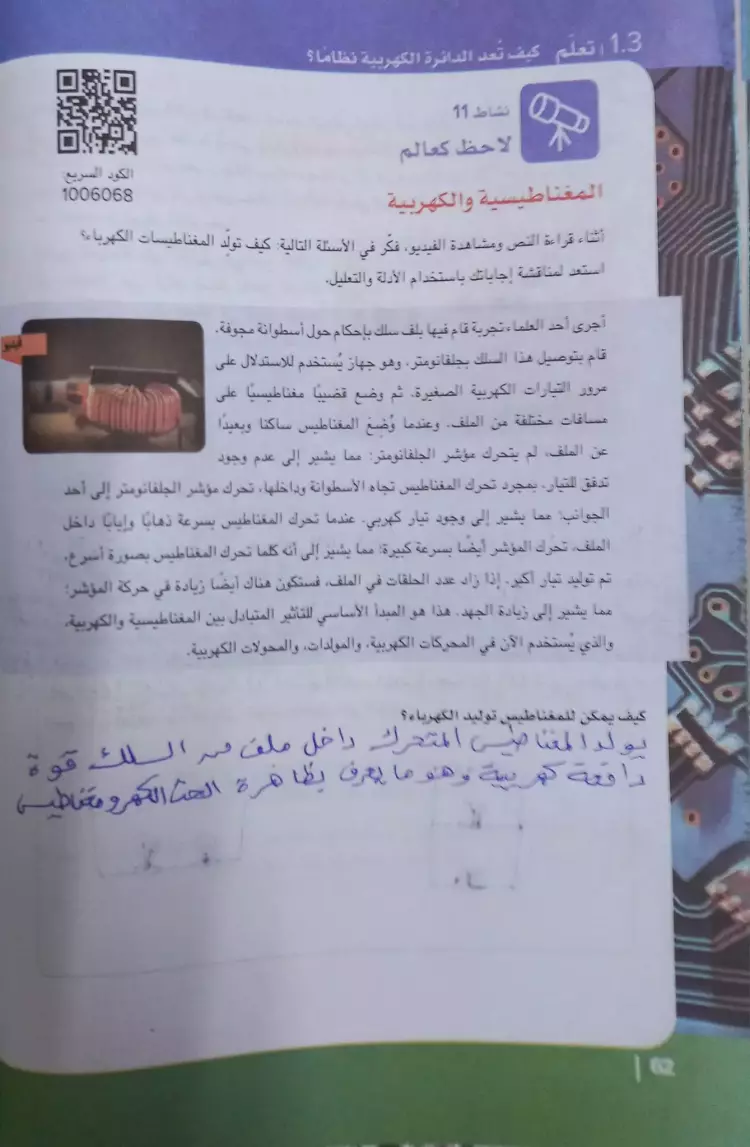 1.3 | تعلّم كيف تُعد الدائرة الكهربية نظامًا؟
نشاط 11
لاحظ كعالم
الكود السريع:
1006068
المغناطيسية والكهربية
أثناء قراءة النص ومشاهدة الفيديو، فكّر في الأسئلة التالية: كيف تولّد المغناطيسات الكهرباء؟
استعد لمناقشة إجاباتك باستخدام الأدلة والتعليل.
فيديو
أجرى أحد العلماء تجربة قام فيها بلف سلك بإحكام حول أسطوانة مجوفة.
قام بتوصيل هذا السلك بجلفانومتر، وهو جهاز يُستخدم للاستدلال على
مرور التيارات الكهربية الصغيرة، ثم وضع قضيبًا مغناطيسيًا على
مسافات مختلفة من الملف. وعندما وُضِعَ المغناطيس ساكنا وبعيدًا
عن الملف، لم يتحرك مؤشر الجلفانومتر؛ مما يشير إلى عدم وجود
تدفق للتيار. بمجرد تحرك المغناطيس تجاه الأسطوانة وداخلها، تحرك مؤشر الجلفانومتر إلى أحد
الجوانب؛ مما يشير إلى وجود تيار كهربي. عندما تحرك المغناطيس بسرعة ذهابًا وإيابًا داخل
الملف، تحرك المؤشر أيضًا بسرعة كبيرة؛ مما يشير إلى أنه كلما تحرك المغناطيس بصورة أسرع،
تم توليد تيار أكبر. إذا زاد عدد الحلقات في الملف، فستكون هناك أيضًا زيادة في حركة المؤشر؛
مما يشير إلى زيادة الجهد. هذا هو المبدأ الأساسي للتأثير المتبادل بين المغناطيسية والكهربية،
والذي يُستخدم الآن في المحركات الكهربية، والمولدات، والمحولات الكهربية.
كيف يمكن للمغناطيس توليد الكهرباء؟
يولد المغناطيس المتحرك داخل ملف من السلك قوة
دافعة كهربية وهو ما يعرف بظاهرة الحث الكهرومغناطيسي
62